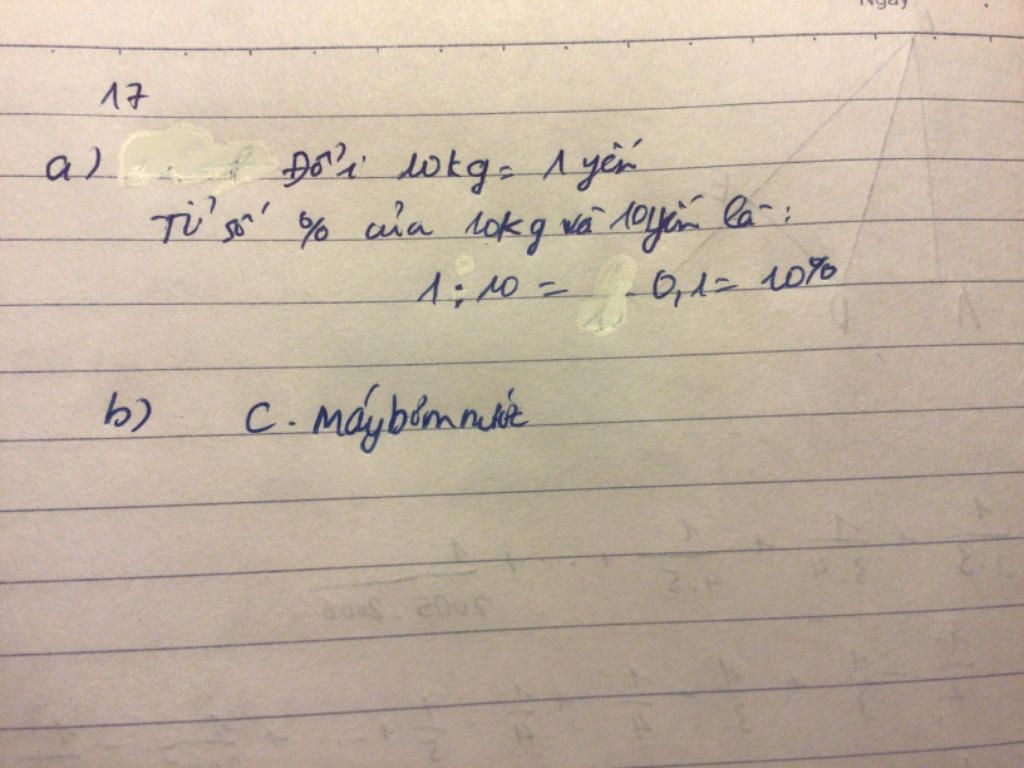 Ngày
17
a) Đổi 10kg = 1 yến
Tỉ số % của 10kg và 10yến là:
1 : 10 = 0,1 = 10%
b) C. máy bơm nước